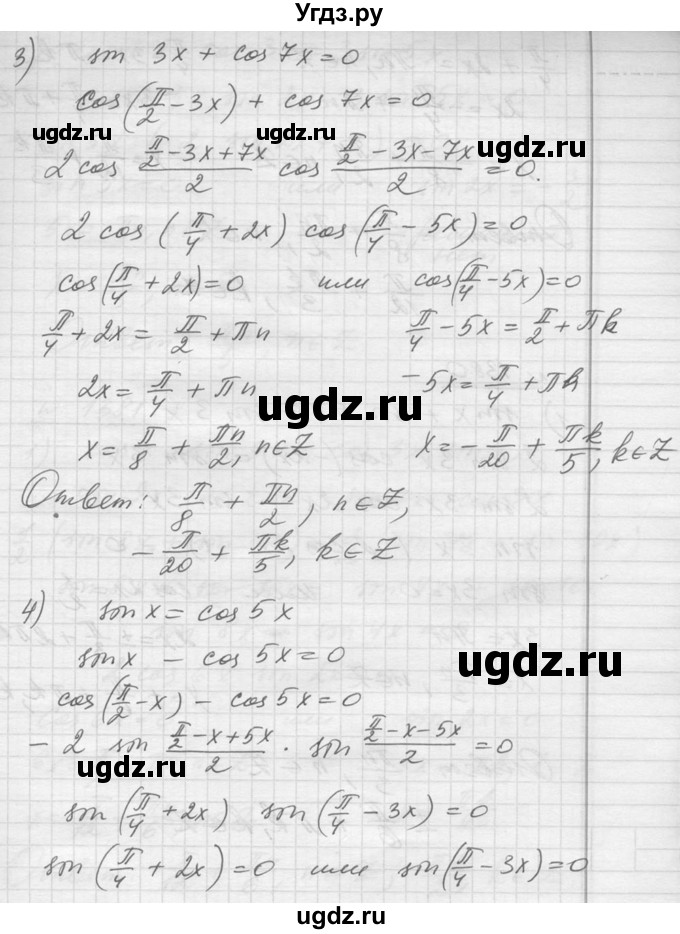 Угдз.ру
3) sin 3x + cos 7x = 0
cos(π/2 - 3x) + cos 7x = 0
ugdz.ru ugdz.ru ugdz.ru
2 cos (π/2 - 3x + 7x)/2 cos (π/2 - 3x - 7x)/2 = 0.
2 cos (π/4 + 2x) cos(π/4 - 5x) = 0
cos(π/4 + 2x) = 0 или cos(π/4 - 5x) = 0
π/4 + 2x = π/2 + πn π/4 - 5x = π/2 + πk
2x = π/4 + πn -5x = π/4 + πk
ugdz.ru
x = π/8 + πn/2, n∈Z x = -π/20 + πk/5, k∈Z
Ответ: π/8 + πn/2, n∈Z,
-π/20 + πk/5, k∈Z
4) sin x = cos 5x
sin x - cos 5x = 0
ugdz.ru
cos(π/2 - x) - cos 5x = 0
-2 sin (π/2 - x + 5x)/2 · sin (π/2 - x - 5x)/2 = 0
ugdz.ru ugdz.ru
sin(π/4 + 2x) sin(π/4 - 3x) = 0
sin(π/4 + 2x) = 0 или sin(π/4 - 3x) = 0
ugdz.ru